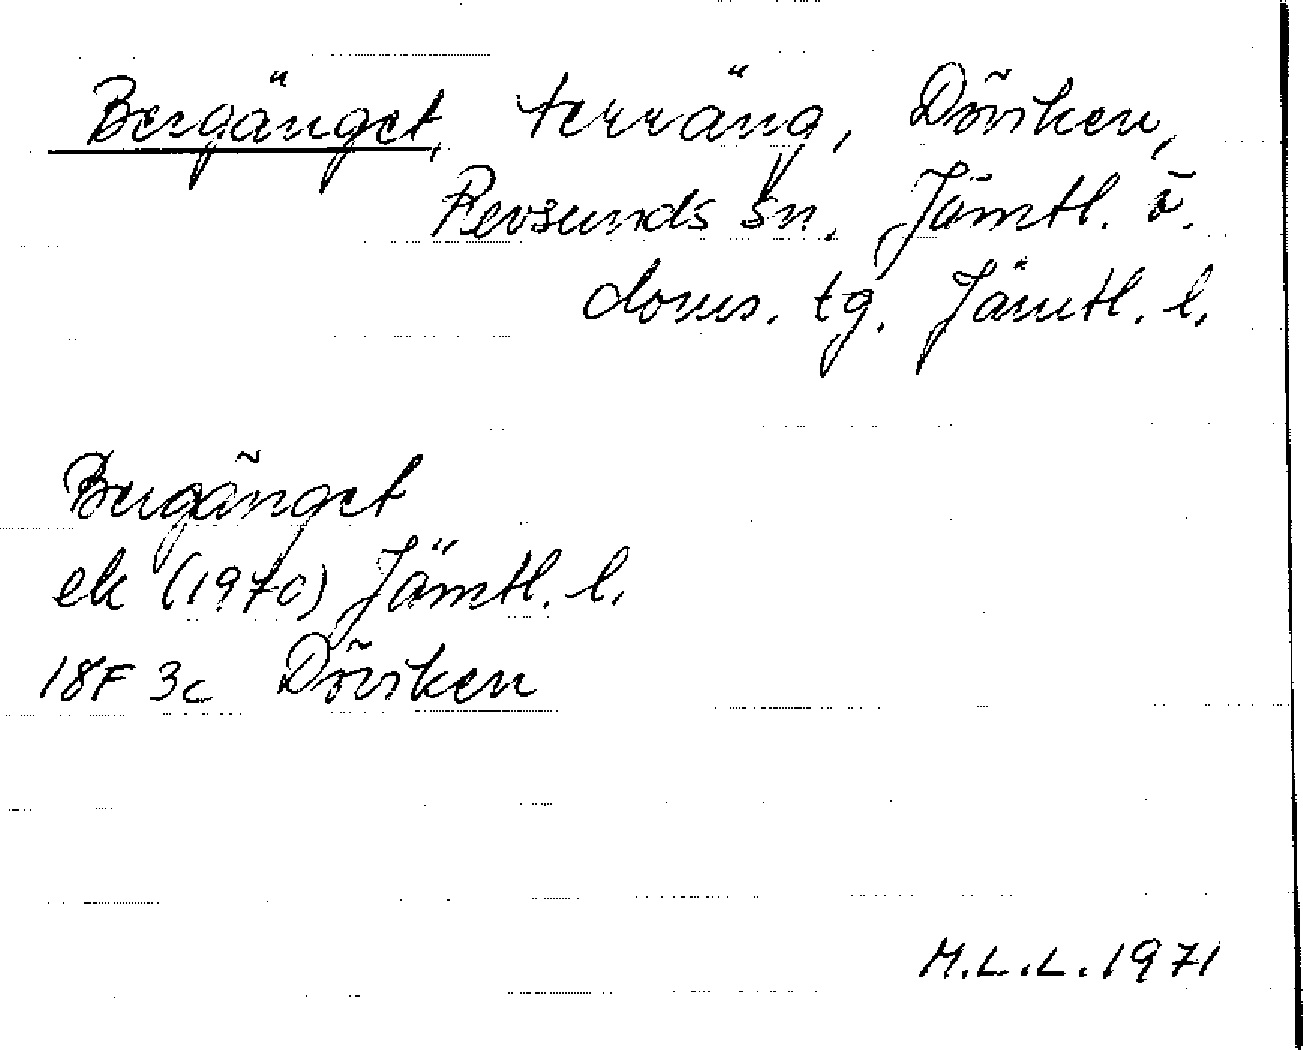 Bergänget, terräng, Döviken,
Revsunds sn. Jämtl. ö.
doms. tg. Jämtl. l.
Bergänget
ek (1970) Jämtl. l.
18F 3c Döviken
M.L.L. 1971